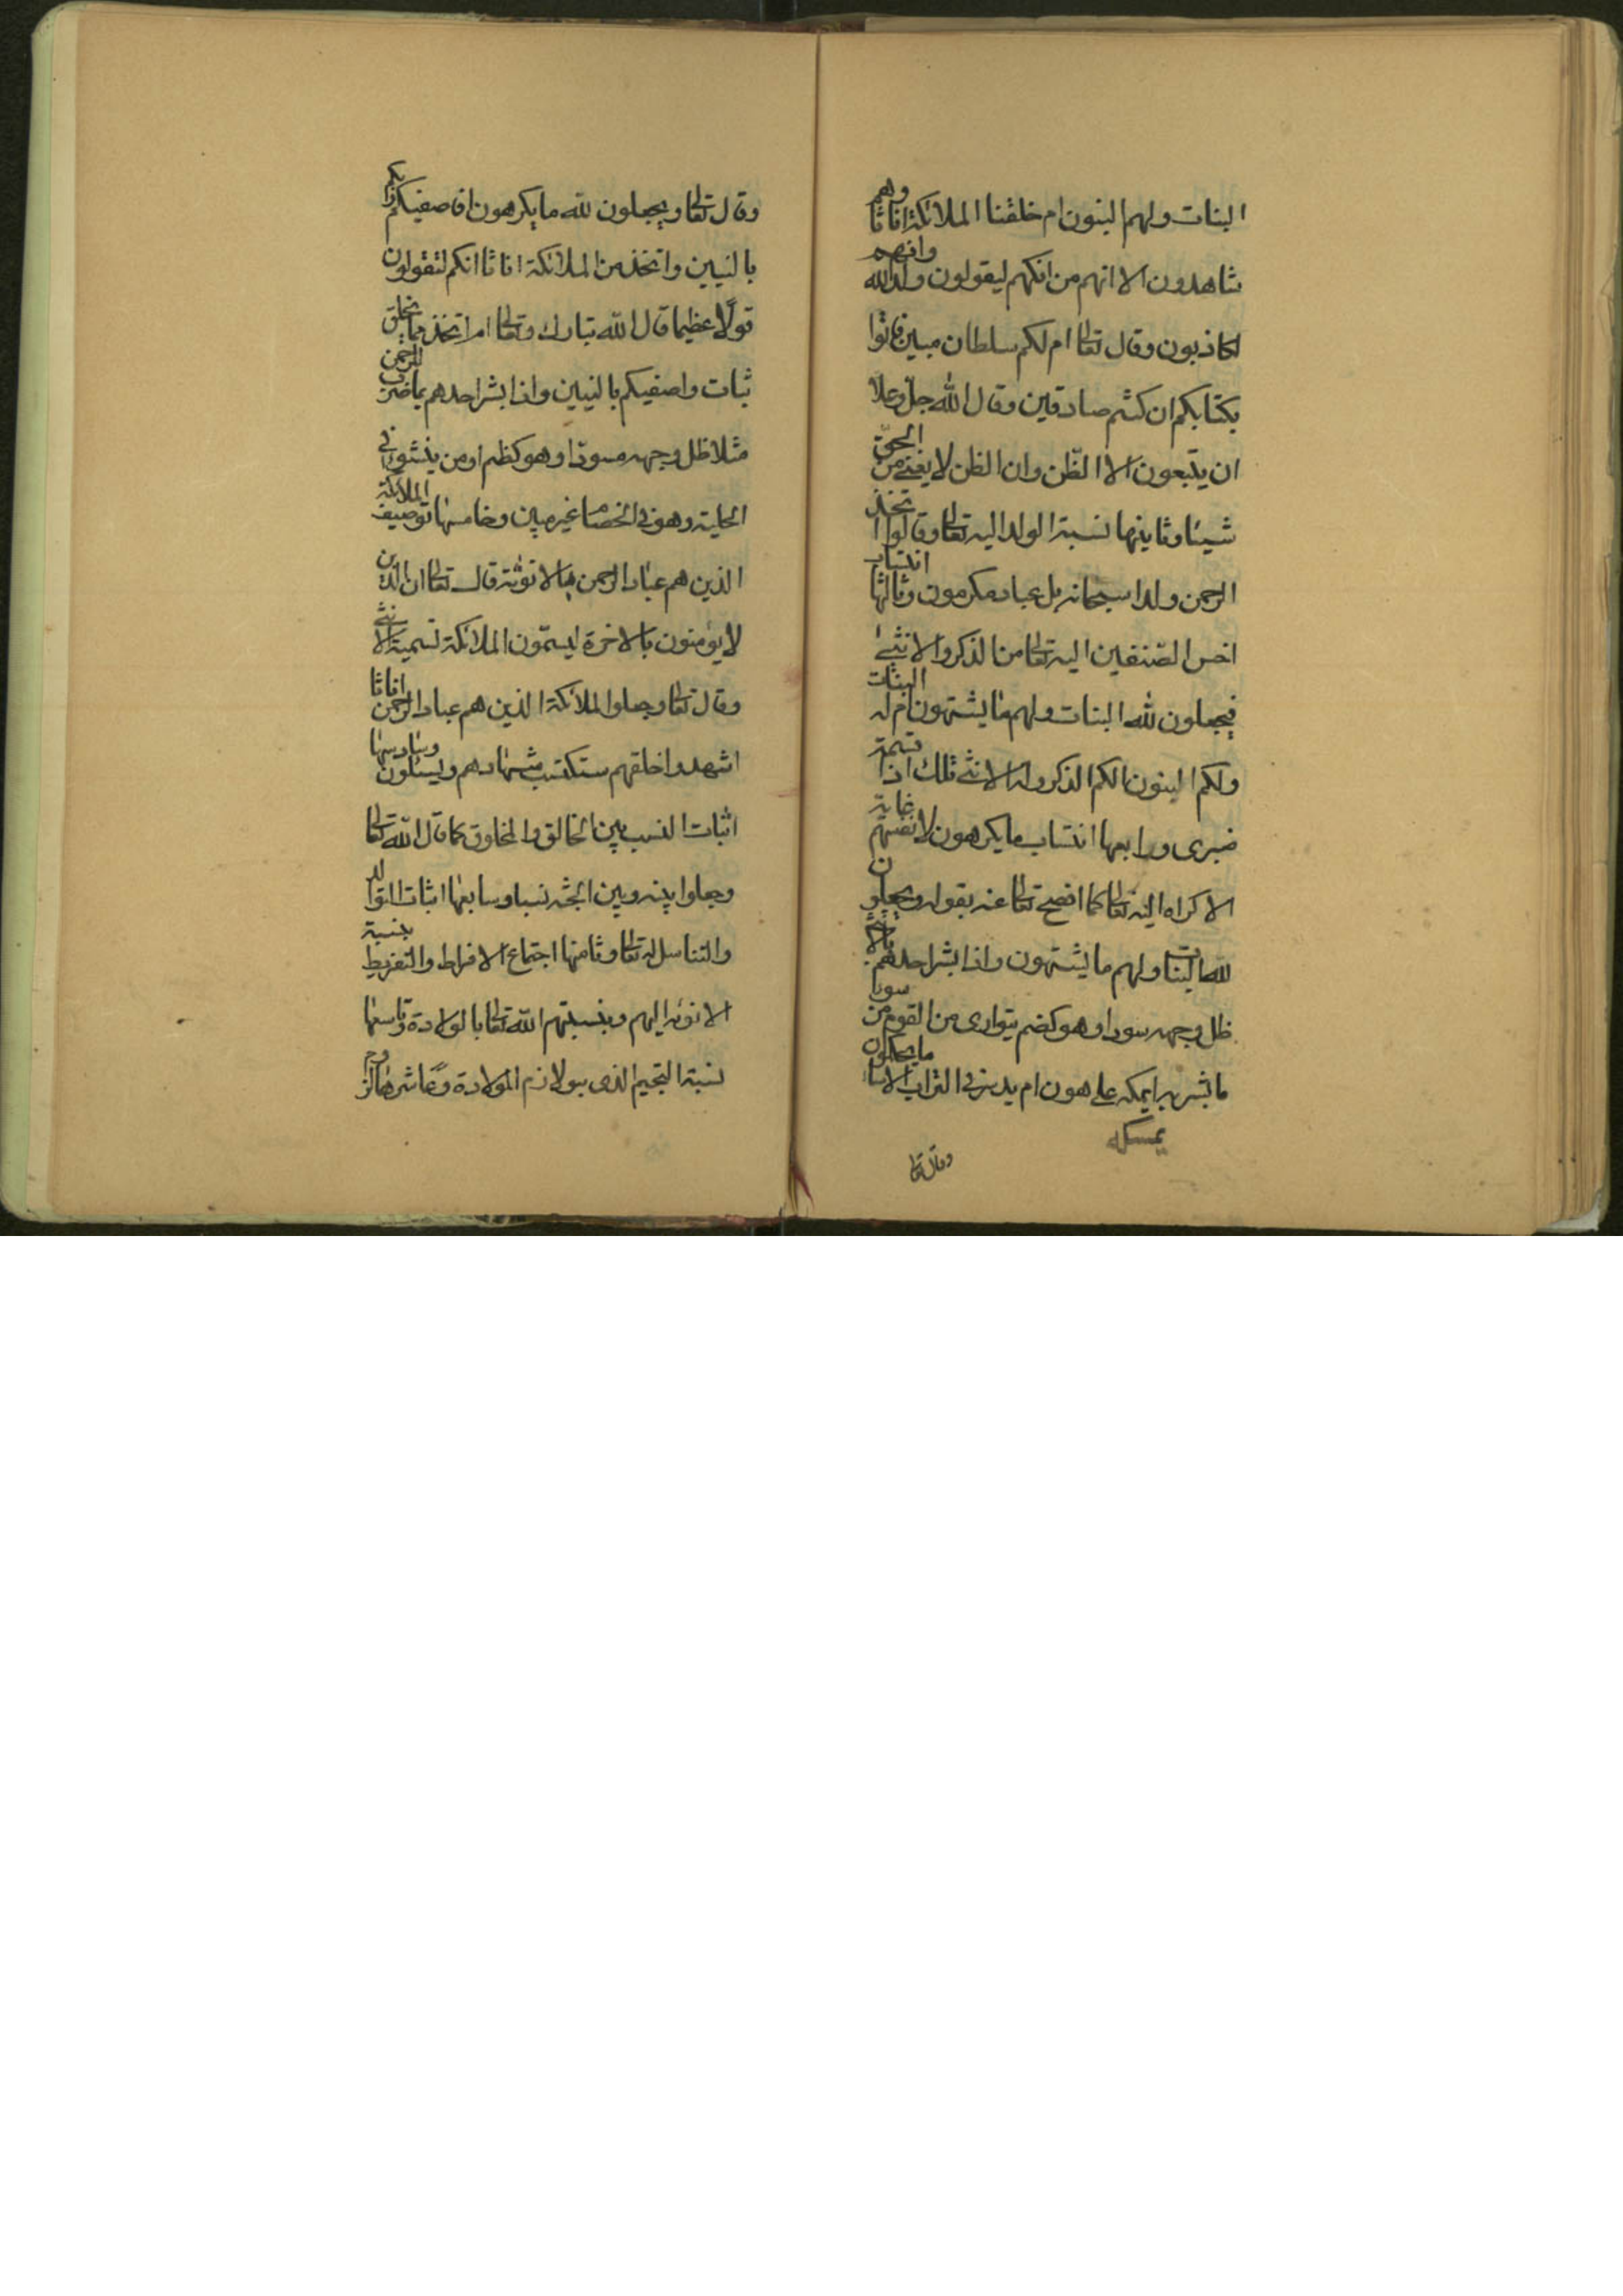 البنات ولهم البنون ام خلقنا الملائكة اناثا وهم
شاهدون الا انهم من افكهم ليقولون ولد الله وانهم
لكاذبون وقال تعالى ام لكم سلطان مبين فاتوا
بكتابكم ان كنتم صادقين وقال الله جل وعلا
ان يتبعون الا الظن وان الظن لا يغني من الحق
شيئا وثانيها نسبة الولد اليه تعالى وقالوا اتخذ
الرحمن ولدا سبحانه بل عباد مكرمون وثالثها انتساب
اخس الصنفين اليه تعالى من الذكر والانثى
فيجعلون لله البنات ولهم ما يشتهون ام له البنات
ولكم البنون الكم الذكر وله الانثى تلك اذا قسمة
ضيزى ورابعها انتساب ما يكرهون لانفسهم غاية
الاكراه اليه تعالى كما افصح تعالى عنه بقوله ويجعلون
لله البنات ولهم ما يشتهون واذا بشر احدهم بالانثى
ظل وجهه مسودا وهو كظيم يتوارى من القوم من سوء
ما بشر به ايمكه على هون ام يدسه في التراب الا ساء ما يحكمون
يمسكه
وقال تعالى
وقال تعالى ويجعلون لله ما يكرهون افاصفيكم ربكم
بالنبين واتخذ من الملائكة اناثا انكم لتقولون
قولا عظيما قال الله تبارك وتعالى ام اتخذ مما يخلق
بنات واصفيكم بالنبين واذا بشر احدهم بما ضرب للرحمن
مثلا ظل وجهه مسودا وهو كظيم اومن ينشؤا في
الحلية وهو في الخصام غير مبين وخامسها توصيف الملائكة
الذين هم عباد الرحمن بالانوثة قال تعالى ان الذين
لا يؤمنون بالاخرة ليسمون الملائكة تسمية الانثى
وقال تعالى وجعلوا الملائكة الذين هم عباد الرحمن اناثا
اشهدوا خلقهم ستكتب شهادهم ويسئلون وسادسها
اثبات النسب بين الخالق والمخلوق كما قال الله تعالى
وجعلوا بينه وبين الجنه نسبا وسابعها اثبات التوالد
والتناسل له تعالى وثامنها اجتماع الافراط والتفريط بنسبة
الانوثه اليهم وبنسبتهم الله تعالى بالولادة وتاسعها
نسبة التجيم الذي هو لازم الولادة وعاشرها لزوم